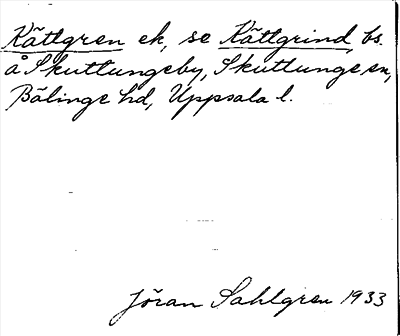 Kättgren ek, se Kättgrind, bs.
å Skuttungeby, Skuttunge sn,
Bälinge hd, Uppsala l.
Jöran Sahlgren 1933